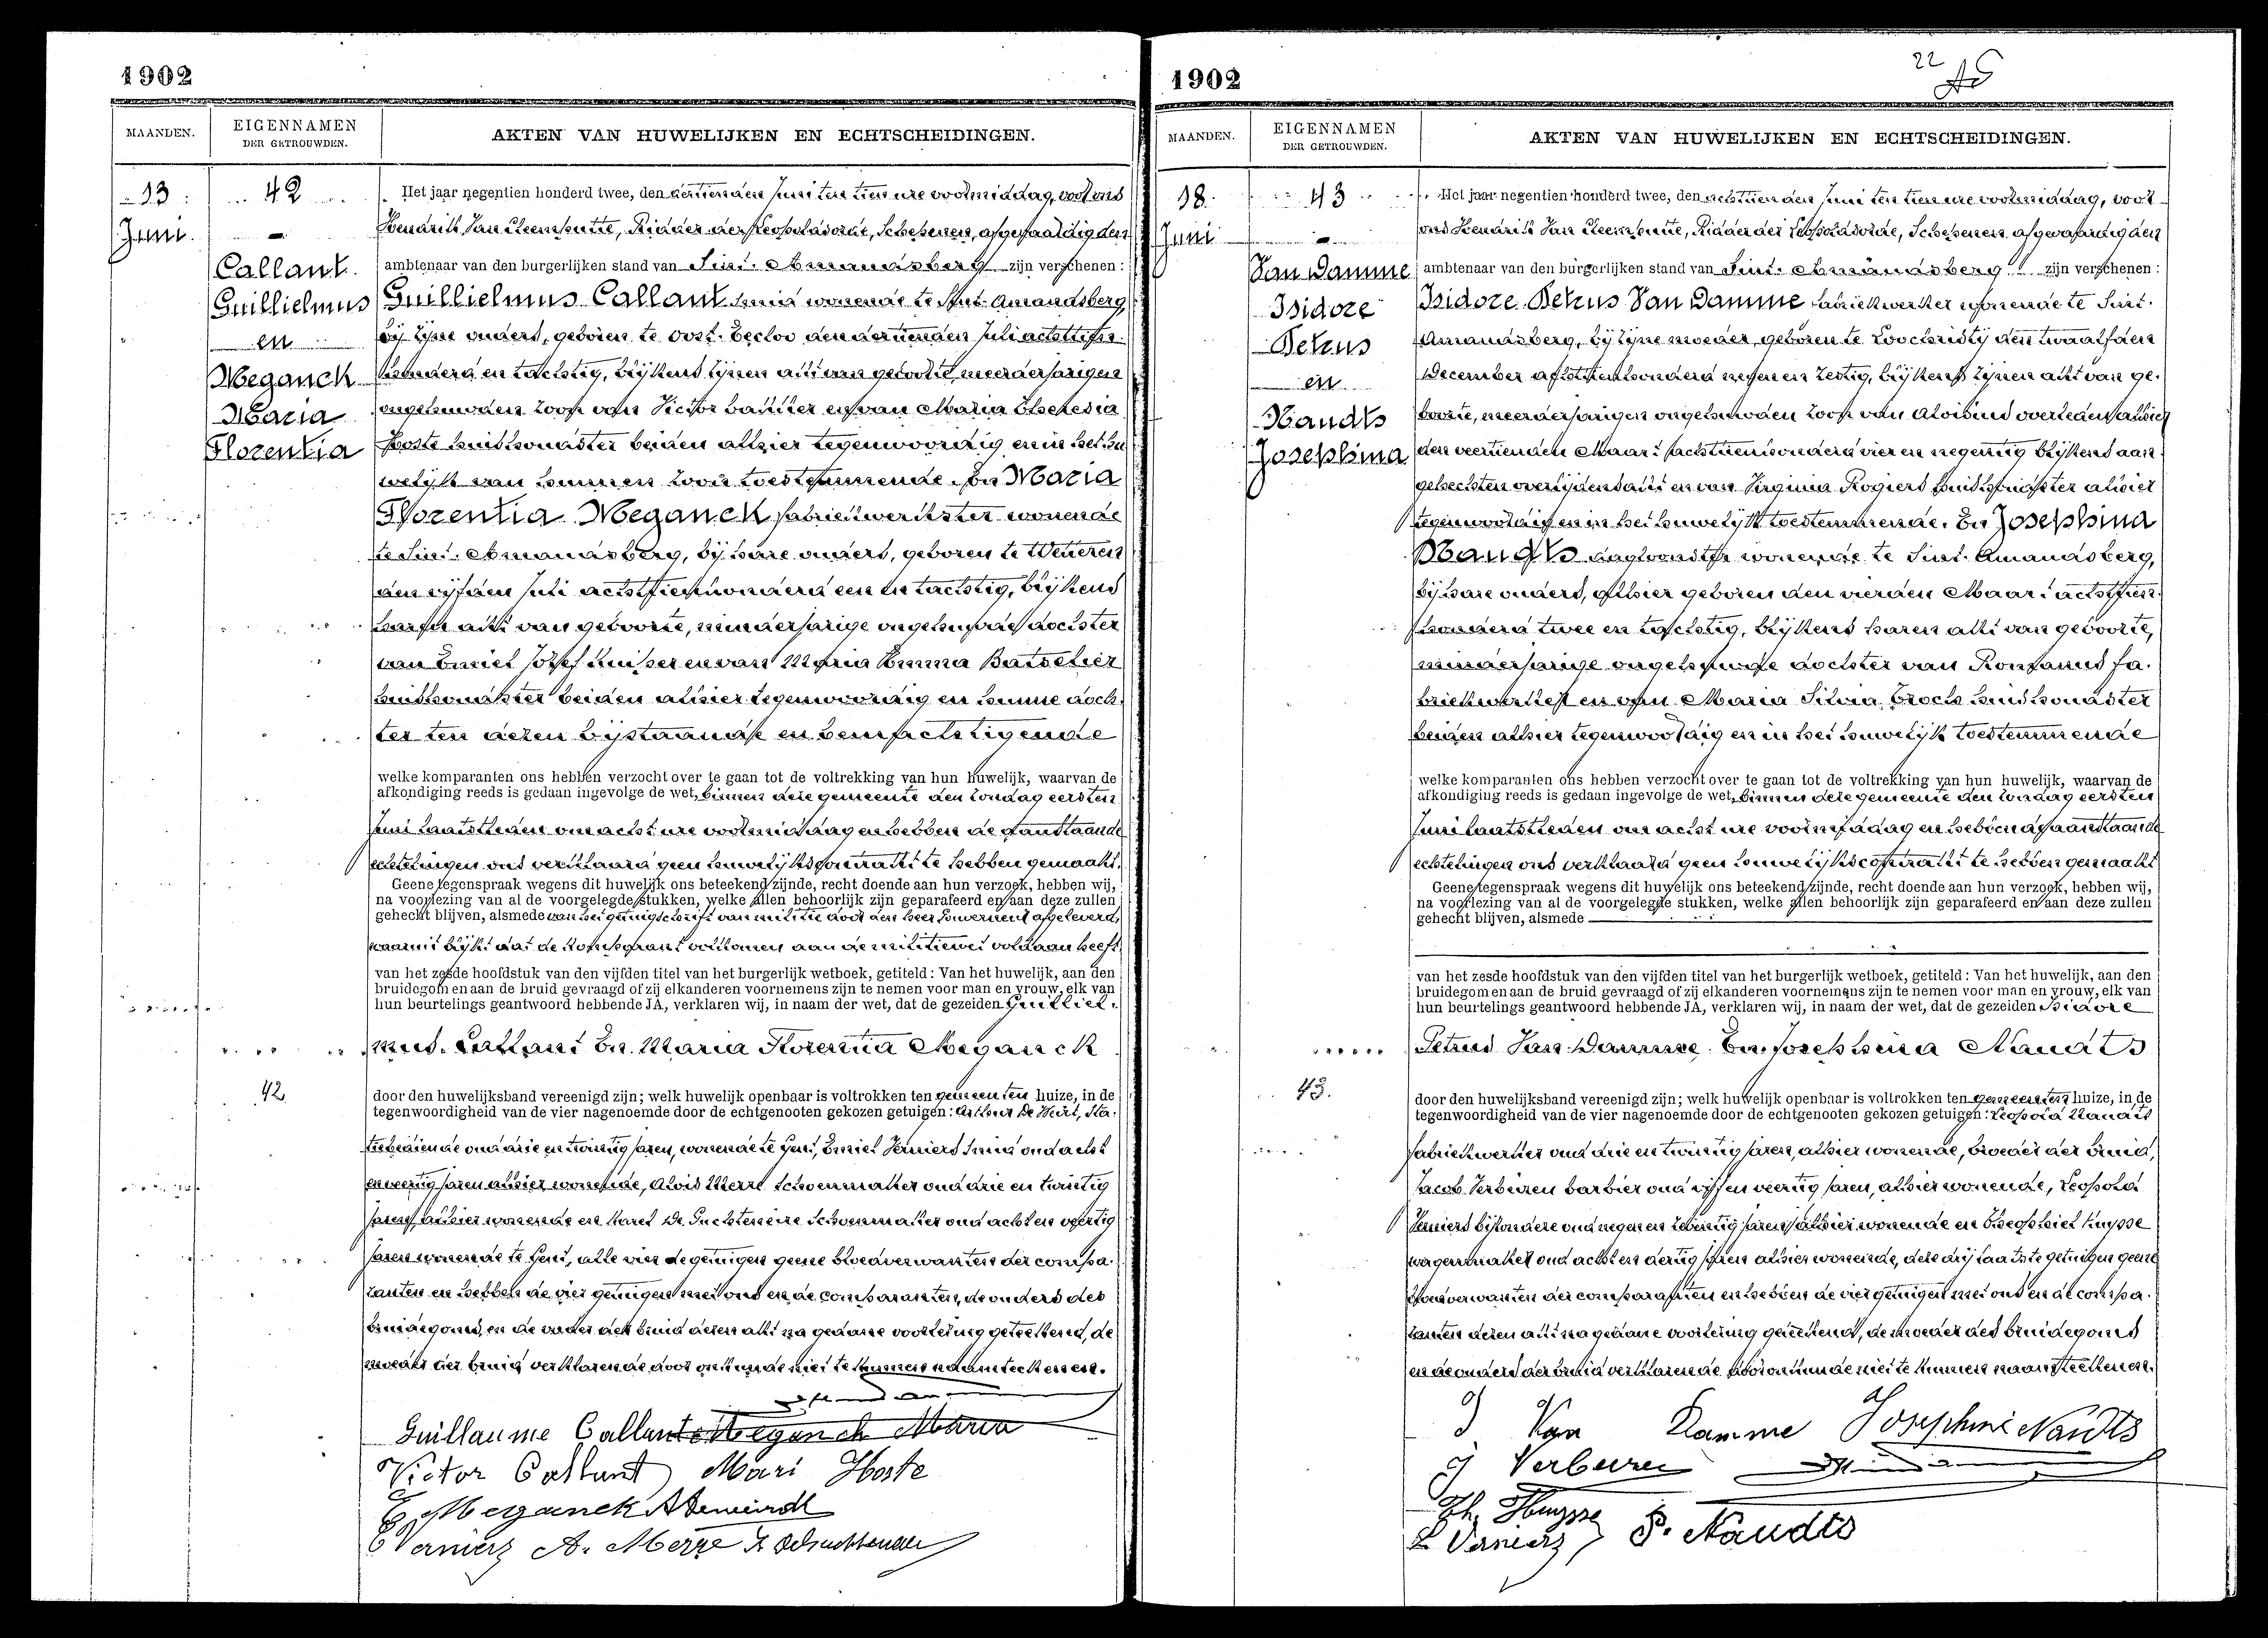 1902
MAANDEN.
EIGENNAMEN
DER GETROUWDEN.
AKTEN VAN HUWELIJKEN EN ECHTSCHEIDINGEN.
13
Juni
42
Callant
Guillielmus
en
Meganck
Maria
Florentia
Het jaar negentien honderd twee, den dertienden Juni ten tien ure voormiddag, voor ons
Hendrik Van Cleemputte, Ridder der Leopoldorde, Schepenen, afgevaardigden
ambtenaar van den burgerlijken stand van Sint. Amandsberg zijn verschenen:
Guillielmus Callant smid wonende te Sint-Amandsberg
bij zijne ouders, geboren te Oost-Eecloo den dertienden Juli achttien
honderd en tachtig, blijkens zijnen akt van geboorte, meerderjarigen
ongehuwden zoon van Victor en van Maria
Hoste huishoudster beiden alhier tegenwoordig en in het hu
welijk van hunnen zoon toestemmende. En Maria
Florentia Meganck fabriekwerkster wonende
te Sint. Amandsberg, bij hare ouders, geboren te Wetteren
den vijfden Juli achttienhonderd een en tachtig, blijkens
haren akt van geboorte, minderjarige ongehuwde dochter
van Emiel Jozef en van Maria Emma Batselier
huishoudster beiden alhier tegenwoordig en hunne doch
ter ten dezen bijstaande en bemachtigende
welke komparanten ons hebben verzocht over te gaan tot de voltrekking van hun huwelijk, waarvan de
afkondiging reeds is gedaan ingevolge de wet, binnen deze gemeente den zondag eersten
Juni laatstleden om acht ure voormiddag en hebben de aanstaande
echtelingen ons verklaard geen huwelijkscontrakt te hebben gemaakt.
Geene tegenspraak wegens dit huwelijk ons beteekend zijnde, recht doende aan hun verzoek, hebben wij,
na voorlezing van al de voorgelegde stukken, welke allen behoorlijk zijn geparafeerd en aan deze zullen
gehecht blijven, alsmede van het getuigschrift van militie door den heer Gouverneur afgeleverd,
waaruit blijkt dat de komparant volkomen aan de militiewet voldaan heeft,
van het zesde hoofdstuk van den vijfden titel van het burgerlijk wetboek, getiteld: Van het huwelijk, aan den
bruidegom en aan de bruid gevraagd of zij elkanderen voornemens zijn te nemen voor man en vrouw, elk van
hun beurtelings geantwoord hebbende JA, verklaren wij, in naam der wet, dat de gezeiden Guilliel.
mus. Callant En. Maria Florentia Meganck
42
door den huwelijksband vereenigd zijn; welk huwelijk openbaar is voltrokken ten gemeenten huize, in de
tegenwoordigheid van de vier nagenoemde door de echtgenooten gekozen getuigen: Arthur De
oud drie en twintig jaren, wonende te Gent, Emiel Verniers smid oud acht
en veertig jaren alhier wonende, Alois Merre schoenmaker oud drie en twintig
jaren, alhier wonende en Karel De schoenmaker oud acht en veertig
jaren wonende te Gent, alle vier de getuigen geene bloedverwanten der compa.
ranten en hebben de vier getuigen met ons en de comparanten, de ouders des
bruidegoms, en de vader der bruid dezen akt na gedane voorlezing geteekend, de
moeder der bruid verklarende door onkunde niet te kunnen naamteekenen.
Guillaume Callant Meganck Maria
Victor Callant Mari Hoste
E. Meganck
E Verniers A. Merre
1902
22
MAANDEN.
EIGENNAMEN
DER GETROUWDEN.
AKTEN VAN HUWELIJKEN EN ECHTSCHEIDINGEN.
18
Juni
43
Van Damme
Isidore
Petrus
en
Naudts
Josephina
Het jaar negentien honderd twee, den achttienden Juni ten tien ure voormiddag, voor
ons Hendrik Van Cleemputte, Ridder der Leopoldorde, Schepenen afgevaardigden
ambtenaar van den burgerlijken stand van Sint. Amandsberg zijn verschenen:
Isidore Petrus Van Damme fabriekwerker wonende te Sint.
Amandsberg, bij zijne moeder, geboren te Loochristy den twaalfden
December achttienhonderd negen en zestig, blijkens zijnen akt van ge.
boorte, meerderjarigen ongehuwden zoon van Aloisius overleden alhier
den veertienden Maart achttienhonderd vier en negentig blijkens aan
gehechten overlijdensakt en van Virginia Rogiers huishoudster alhier
tegenwoordig en in het huwelijk toestemmende. En Josephina
Naudts dagloonster wonende te Sint-Amandsberg,
bij hare ouders, alhier geboren den vierden Maart achttien
honderd twee en tachtig, blijkens haren akt van geboorte,
minderjarige ongehuwde dochter van fa.
briekwerker en van Maria Silvia huishoudster
beiden alhier tegenwoordig en in het huwelijk toestemmende
welke komparanten ons hebben verzocht over te gaan tot de voltrekking van hun huwelijk, waarvan de
afkondiging reeds is gedaan ingevolge de wet, binnen deze gemeente den zondag eersten
Juni laatstleden om acht ure voormiddag en hebben de aanstaande
echtelingen ons verklaard geen huwelijkscontrakt te hebben gemaakt
Geene tegenspraak wegens dit huwelijk ons beteekend zijnde, recht doende aan hun verzoek, hebben wij,
na voorlezing van al de voorgelegde stukken, welke allen behoorlijk zijn geparafeerd en aan deze zullen
gehecht blijven, alsmede
van het zesde hoofdstuk van den vijfden titel van het burgerlijk wetboek, getiteld: Van het huwelijk, aan den
bruidegom en aan de bruid gevraagd of zij elkanderen voornemens zijn te nemen voor man en vrouw, elk van
hun beurtelings geantwoord hebbende JA, verklaren wij, in naam der wet, dat de gezeiden Isidore
Petrus Van Damme. En. Josephina Naudts
43.
door den huwelijksband vereenigd zijn; welk huwelijk openbaar is voltrokken ten gemeenten huize, in de
tegenwoordigheid van de vier nagenoemde door de echtgenooten gekozen getuigen: Leopold Naudts
fabriekwerker oud drie en twintig jaren, alhier wonende, broeder der bruid,
Jacob Verbeiren barbier oud vijf en veertig jaren, alhier wonende, Leopold
Verniers bijzondere oud negen en zeventig jaren alhier wonende en Theophiel Huysse
wagenmaker oud acht en dertig jaren alhier wonende, deze drij laatste getuigen geene
bloedverwanten der comparanten en hebben de vier getuigen met ons en de compa.
ranten dezen akt na gedane voorlezing geteekend, de moeder des bruidegoms
en de ouders der bruid verklarende door onkunde niet te kunnen naamteekenen.
J Van Damme Josephine Naudts
J Verbeiren
Th. Huysse
L Verniers P. Naudts